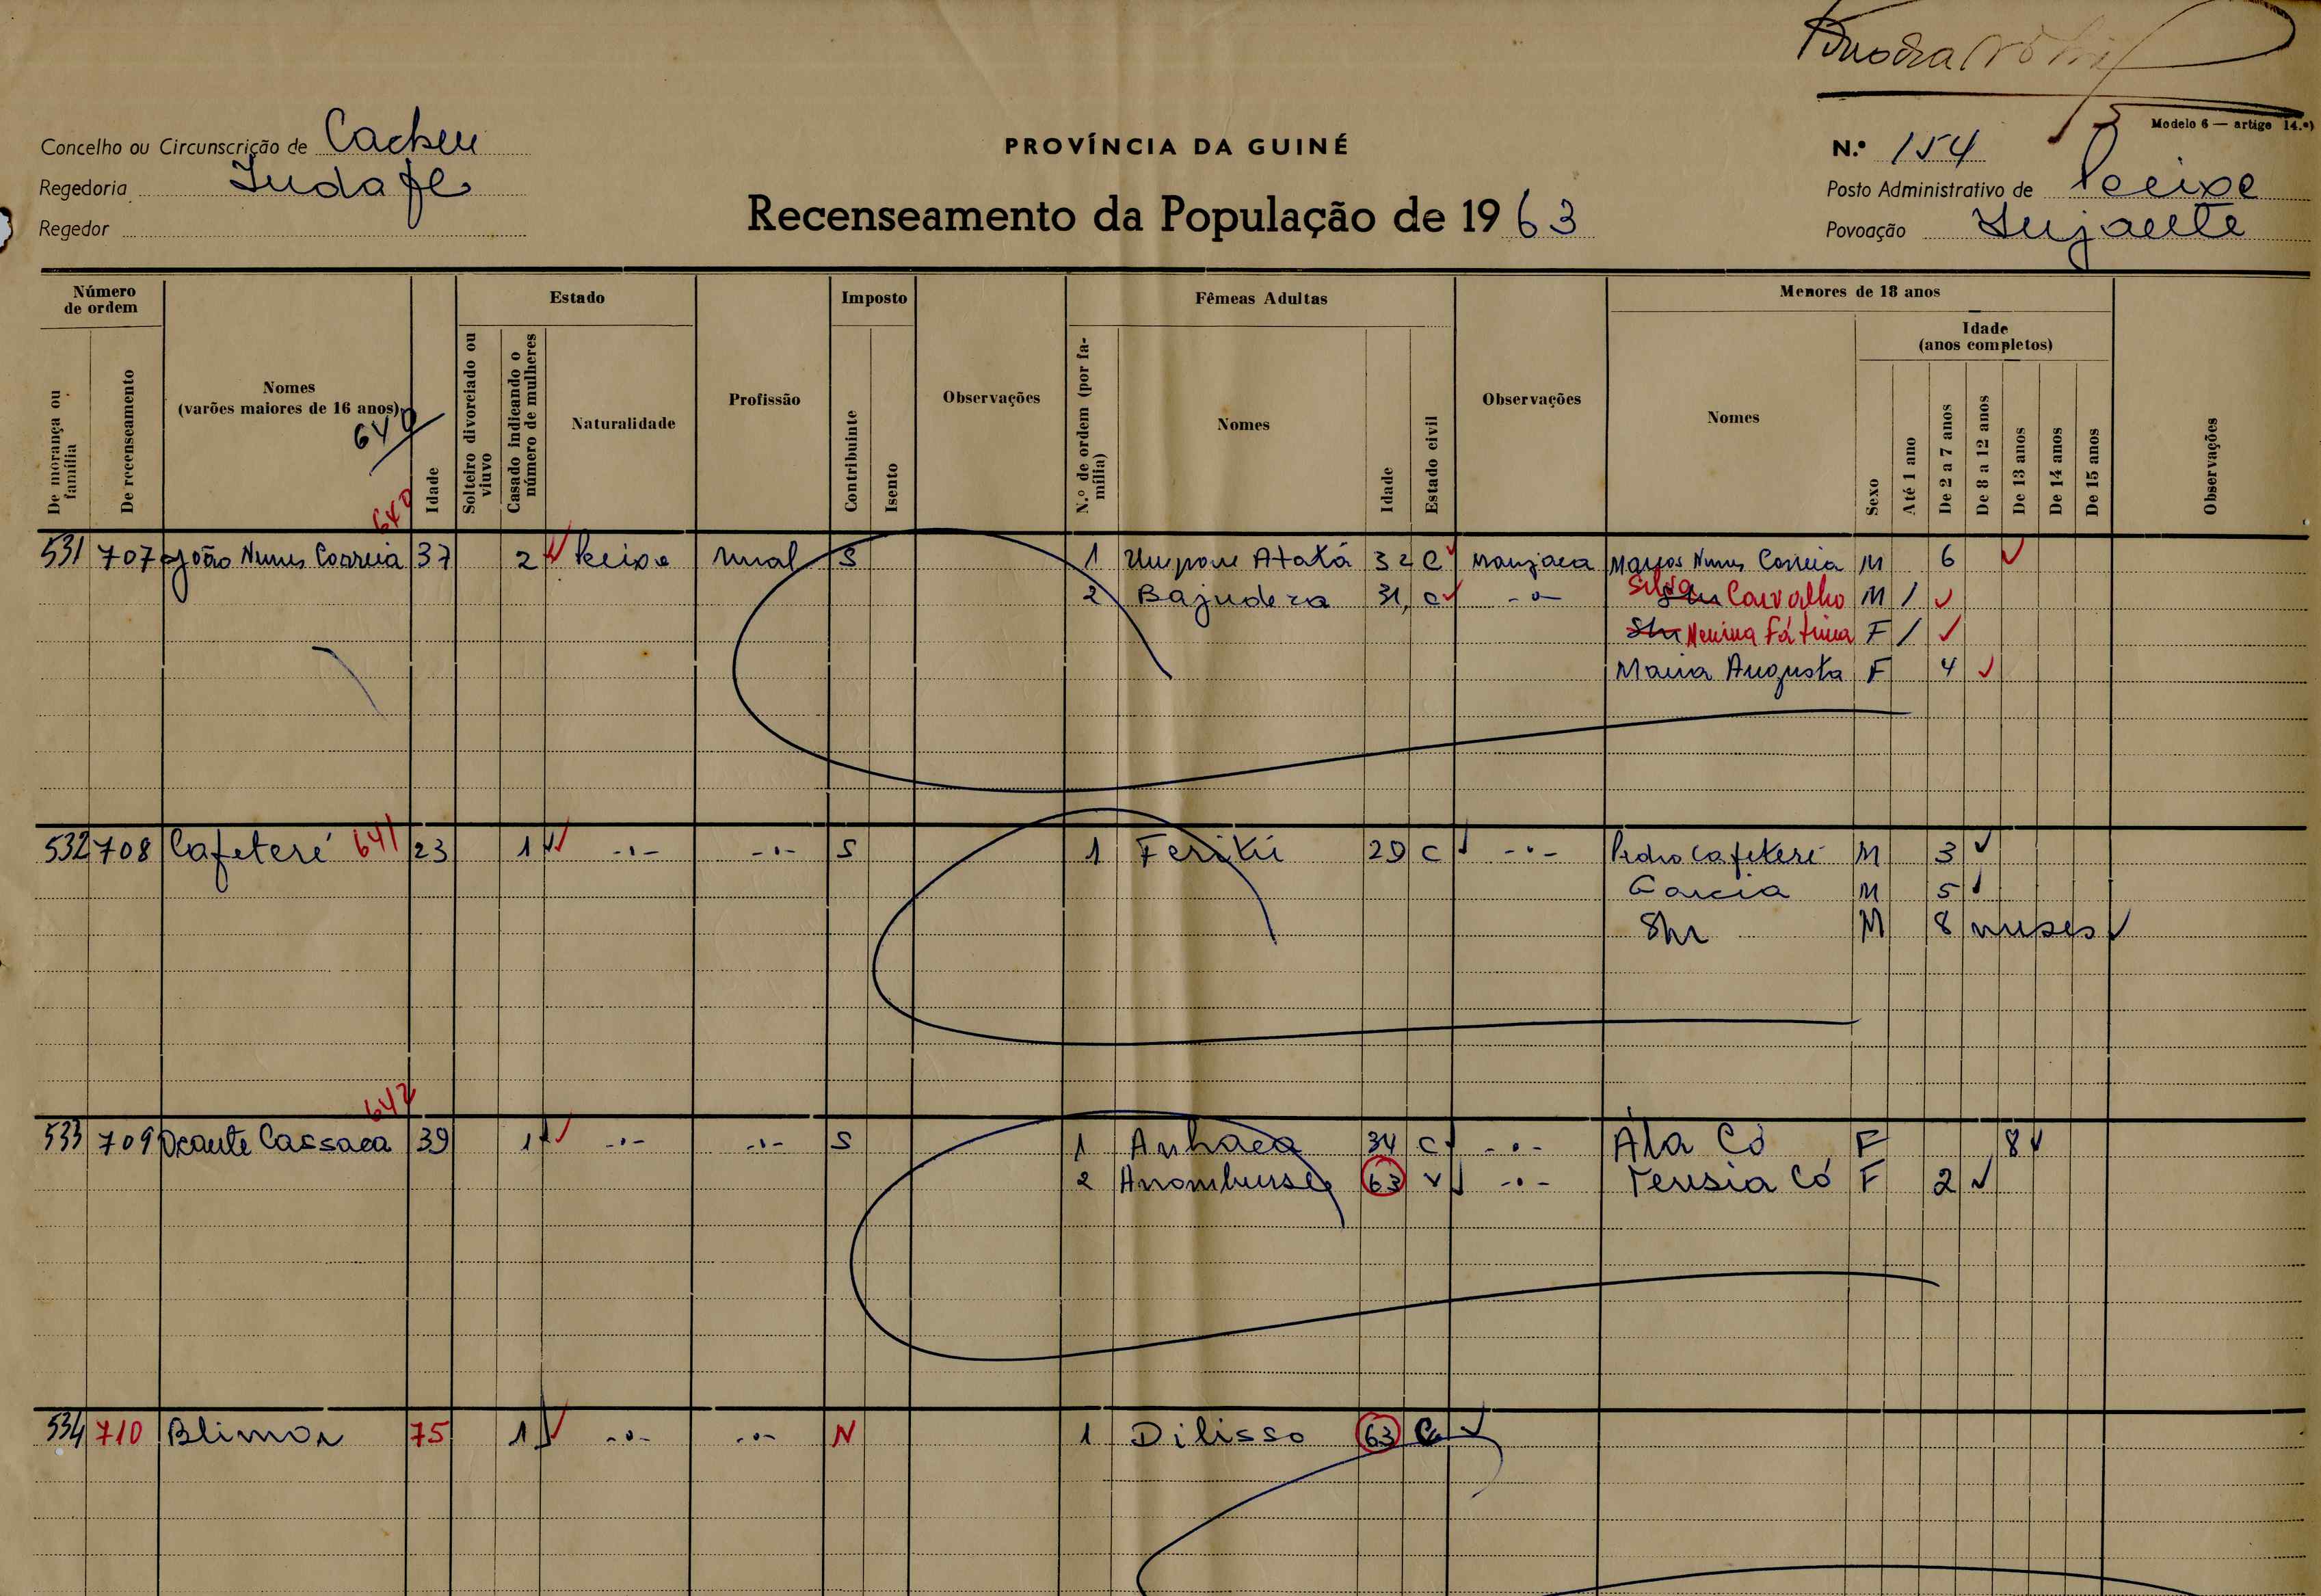 Modelo 6 — artigo 14.º)
Concelho ou Circunscrição de Cacheu
PROVÍNCIA DA GUINÉ
N.º 154
Regedoria
Posto Administrativo de
Recenseamento da População de 1963
Regedor
Povoação
Número de ordem
Estado
Imposto
Fêmeas Adultas
Menores de 18 anos
Idade
(anos completos)
De morança ou família
De recenseamento
Nomes
(varões maiores de 16 anos)
640
Idade
Solteiro divorciado ou viuvo
Casado indicando o número de mulheres
Naturalidade
Profissão
Contribuinte
Isento
Observações
N.º de ordem (por família)
Nomes
Idade
Estado civil
Observações
Nomes
Sexo
Até 1 ano
De 2 a 7 anos
De 8 a 12 anos
De 13 anos
De 14 anos
De 15 anos
Observações
640
531 707 João Nunes Correia 37 2 rural S 1 Ataká 32 C Manjaca Marcos Nunes Correia M 6
2 Bajudera 31 C -"- Silva Carvalho M /
Menina Fátima F /
Maria Augusta F 4
532 708 Cafeteré 641 23 1 -"- -"- S 1 Ferikú 29 C -"- Pedro Cafeteré M 3
Garcia M 5
M 8 meses
642
533 709 Ocante Cassaca 39 1 -"- -"- S 1 Anhaca 34 C -"- Ála Có F 8
2 63 V -"- Có F 2
534 710 Blimor 75 1 -"- -"- N 1 Dilisso 63 C